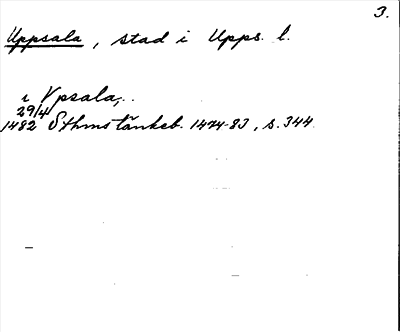 3.
Uppsala, stad i Upps. l.
i Vpsala,.
29/4
1482 Sthms tänkeb. 1474-83, s. 344